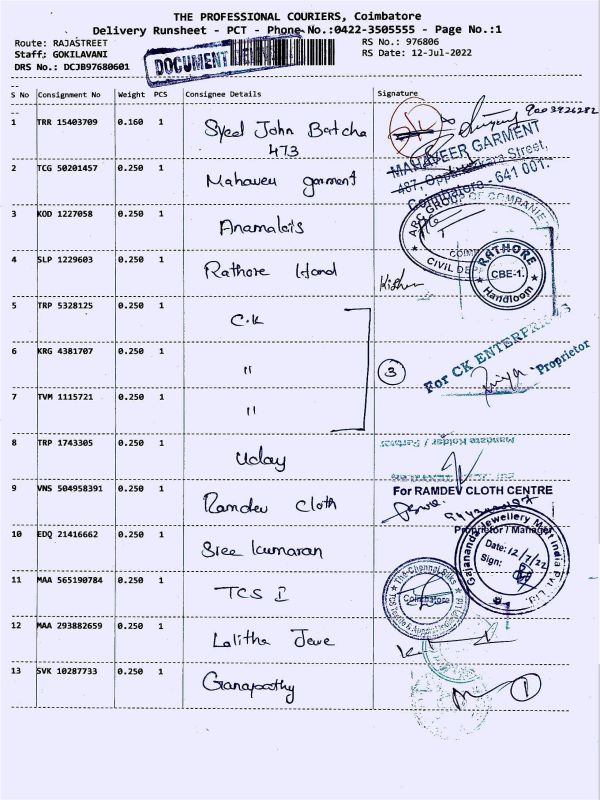 THE PROFESSIONAL COURIERS, Coimbatore
Delivery Runsheet - PCT - Phone No.:0422-3505555 - Page No.:1
Route: RAJASTREET
RS No.: 976806
Staff: GOKILAVANI
RS Date: 12-Jul-2022
DRS No.: DCJB97680601
DOCUMENT
S No Consignment No Weight PCS Consignee Details Signature
1 TRR 15403709 0.160 1 Syed John Batcha
473
MAHAVEER GARMENT
487, Oppanakara Street,
Coimbatore - 641 001.
2 TCG 50201457 0.250 1 Mahaveer garment
3 KOD 1227058 0.250 1 Anamalais
ARC GROUP OF COMPANIE
CIVIL DEP
4 SLP 1229603 0.250 1 Rathore Hand
RATHORE
CBE-1.
Handloom
5 TRP 5328125 0.250 1 C.K
For CK ENTERPRISES
Proprietor
6 KRG 4381707 0.250 1 "
3
7 TVM 1115721 0.250 1 "
8 TRP 1743305 0.250 1 Uday
9 VNS 504958391 0.250 1 Ramdev Cloth
For RAMDEV CLOTH CENTRE
Proprietor / Manager
10 EDQ 21416662 0.250 1 Sree kumaran
Gajananda Jewellery Mart India Pvt Ltd
Date: 12/7/22
Sign:
11 MAA 565190784 0.250 1 TCS I
The Chennai Silks
Coimbatore
12 MAA 293882659 0.250 1 Lalitha Jewe
13 SVK 10287733 0.250 1 Ganapathy
1